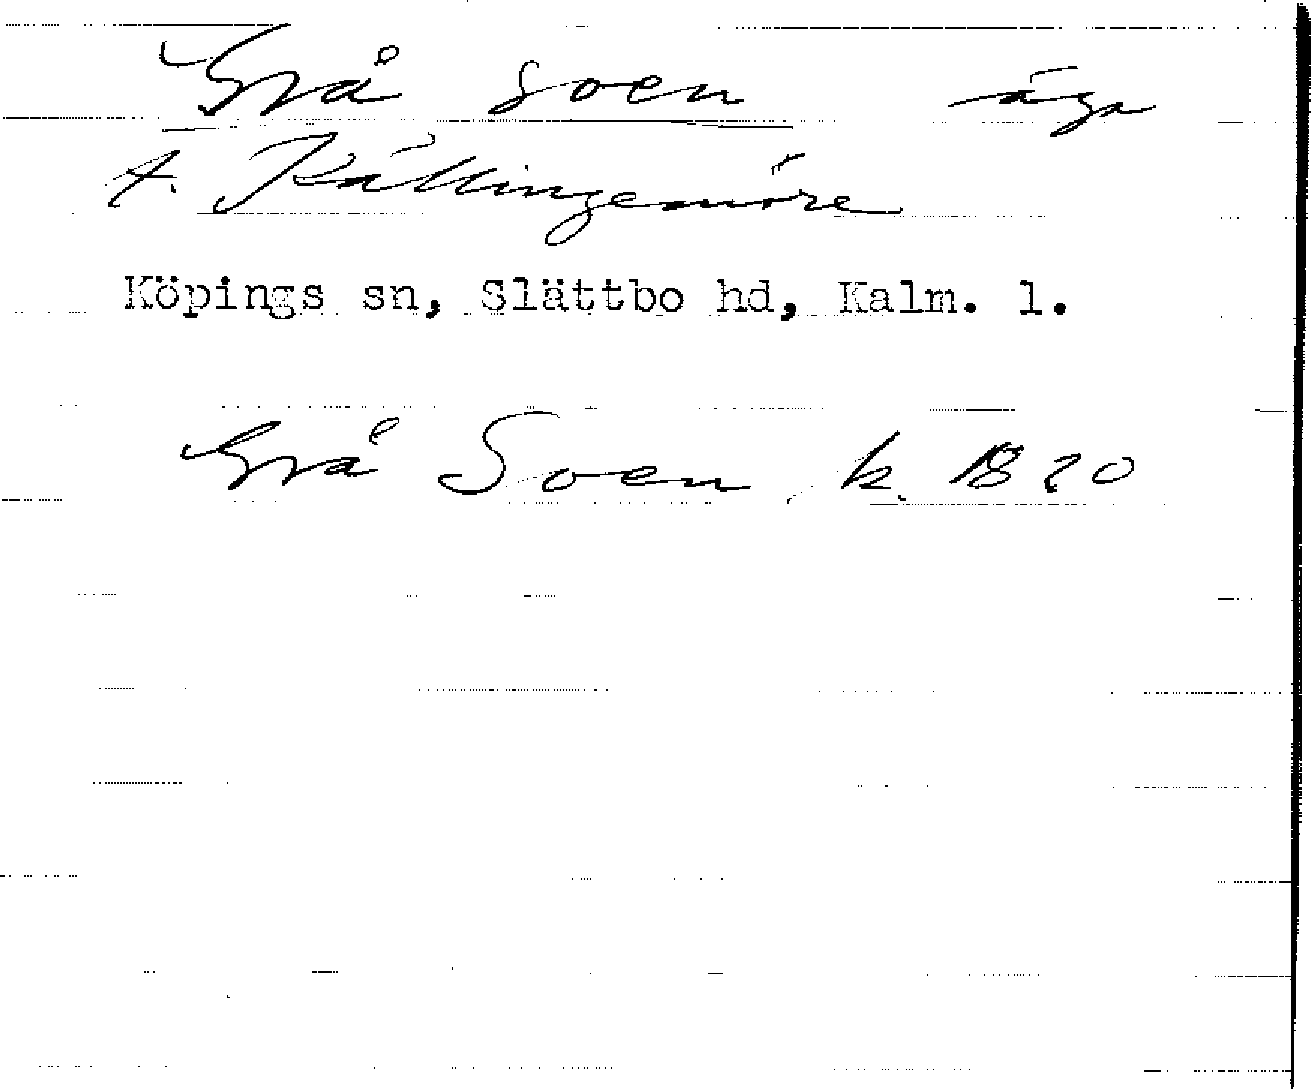 Grå soen äga
t. Källingemöre
Köpings sn, Slättbo hd, Kalm. l.
Grå Soen k. 1820